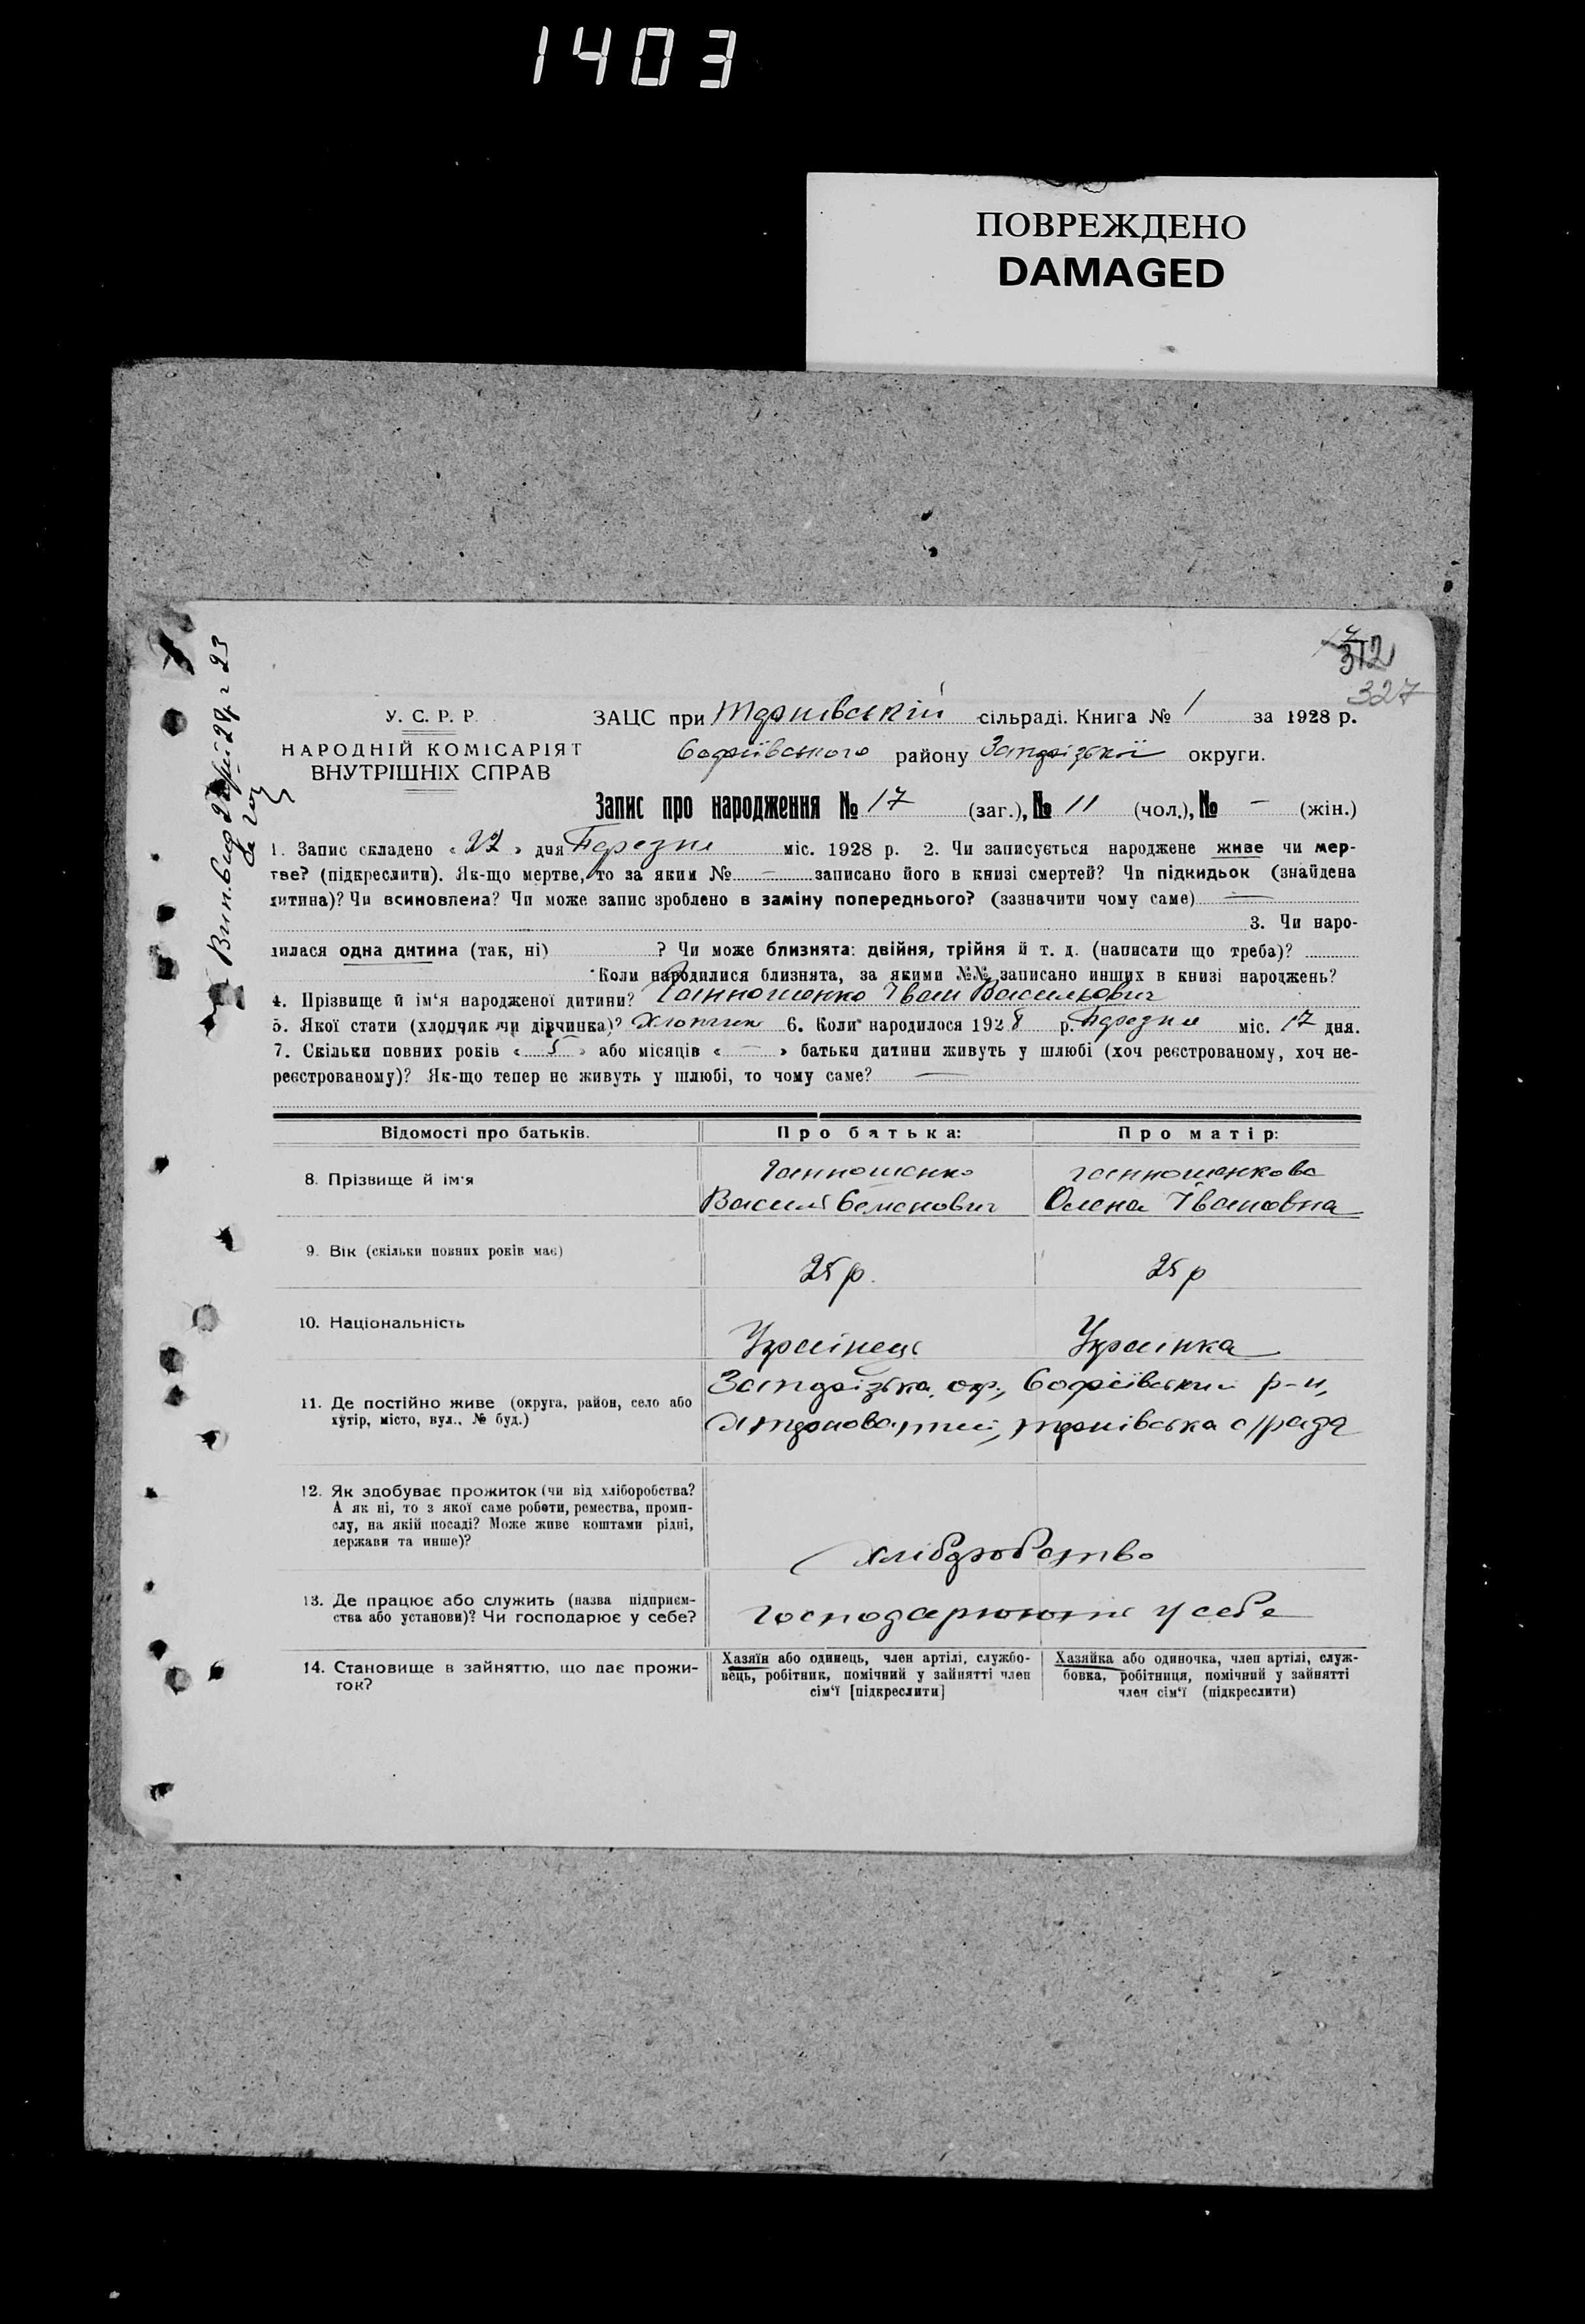 1403
ПОВРЕЖДЕНО
DAMAGED
312
327
У. С. Р. Р.
НАРОДНІЙ КОМІСАРІЯТ
ВНУТРІШНІХ СПРАВ
ЗАЦС при Тернівській сільраді. Книга № 1 за 1928 р.
Софіївського району Запорізької округи.
Запис про народження № 17 (заг.), № 11 (чол.), № – (жін.)
1. Запис складено « 22 » дня Березня міс. 1928 р. 2. Чи записується народжене живе чи мер-
тве? (підкреслити). Як-що мертве, то за яким № – записано його в книзі смертей? Чи підкидьок (знайдена
дитина)? Чи всиновлена? Чи може запис зроблено в заміну попереднього? (зазначити чому саме) —
3. Чи наро-
дилася одна дитина (так, ні) ? Чи може близнята: двійня, трійня й т. д. (написати що треба)?
Коли народилися близнята, за якими №№ записано инших в книзі народжень?
4. Прізвище й ім‘я народженої дитини? Іван Васильович
5. Якої стати (хлопчик чи дівчинка)? Хлопчик 6. Коли народилося 1928 р. Березня міс. 17 дня.
7. Скільки повних років « 5 » або місяців « – » батьки дитини живуть у шлюбі (хоч реєстрованому, хоч не-
реєстрованому)? Як-що тепер не живуть у шлюбі, то чому саме? —
Відомості про батьків.
Про батька:
Про матір:
8. Прізвище й ім‘я
Семенович
Олена Івановна
9. Вік (скільки повних років має)
25 р.
25 р
10. Національність
Українець
Українка
11. Де постійно живе (округа, район, село або
хутір, місто, вул., № буд.)
Запорізька окр., Софіївський р-н,
тернівська с/рада
12. Як здобуває прожиток (чи від хліборобства?
А як ні, то з якої саме роботи, ремества, проми-
слу, на якій посаді? Може живе коштами рідні,
держави та инше)?
хліборобство
13. Де працює або служить (назва підприєм-
ства або установи)? Чи господарює у себе?
господарюють у себе
14. Становище в зайняттю, що дає прожи-
ток?
Хазяїн або одинець, член артілі, службо-
вець, робітник, помічний у зайнятті член
сім‘ї [підкреслити]
Хазяйка або одиночка, член артілі, служ-
бовка, робітниця, помічний у зайнятті
член сім‘ї (підкреслити)